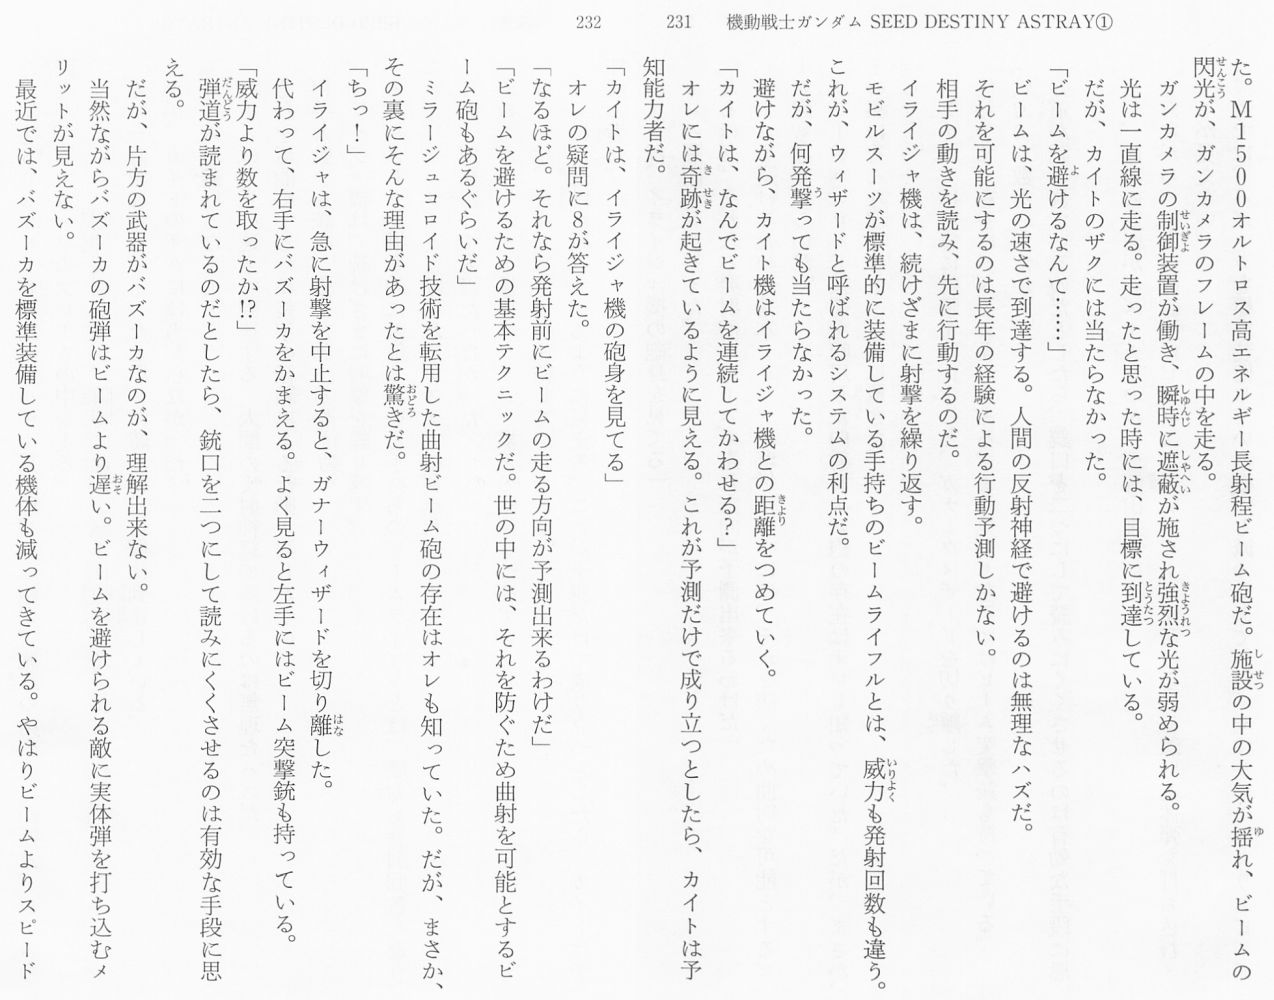 機動戦士ガンダム SEED DESTINY ASTRAY①
231
た。M1500オルトロス高エネルギー長射程ビーム砲だ。施設の中の大気が揺れ、ビームの
閃光が、ガンカメラのフレームの中を走る。
ガンカメラの制御装置が働き、瞬時に遮蔽が施され強烈な光が弱められる。
光は一直線に走る。走ったと思った時には、目標に到達している。
だが、カイトのザクには当たらなかった。
「ビームを避けるなんて……」
ビームは、光の速さで到達する。人間の反射神経で避けるのは無理なハズだ。
それを可能にするのは長年の経験による行動予測しかない。
相手の動きを読み、先に行動するのだ。
イライジャ機は、続けざまに射撃を繰り返す。
モビルスーツが標準的に装備している手持ちのビームライフルとは、威力も発射回数も違う。
これが、ウィザードと呼ばれるシステムの利点だ。
だが、何発撃っても当たらなかった。
避けながら、カイト機はイライジャ機との距離をつめていく。
「カイトは、なんでビームを連続してかわせる?」
オレには奇跡が起きているように見える。これが予測だけで成り立つとしたら、カイトは予
知能力者だ。
232
「カイトは、イライジャ機の砲身を見てる」
オレの疑問に8が答えた。
「なるほど。それなら発射前にビームの走る方向が予測出来るわけだ」
「ビームを避けるための基本テクニックだ。世の中には、それを防ぐため曲射を可能とするビ
ーム砲もあるぐらいだ」
ミラージュコロイド技術を転用した曲射ビーム砲の存在はオレも知っていた。だが、まさか、
その裏にそんな理由があったとは驚きだ。
「ちっ!」
イライジャは、急に射撃を中止すると、ガナーウィザードを切り離した。
代わって、右手にバズーカをかまえる。よく見ると左手にはビーム突撃銃も持っている。
「威力より数を取ったか!?」
弾道が読まれているのだとしたら、銃口を二つにして読みにくくさせるのは有効な手段に思
える。
だが、片方の武器がバズーカなのが、理解出来ない。
当然ながらバズーカの砲弾はビームより遅い。ビームを避けられる敵に実体弾を打ち込むメ
リットが見えない。
最近では、バズーカを標準装備している機体も減ってきている。やはりビームよりスピード